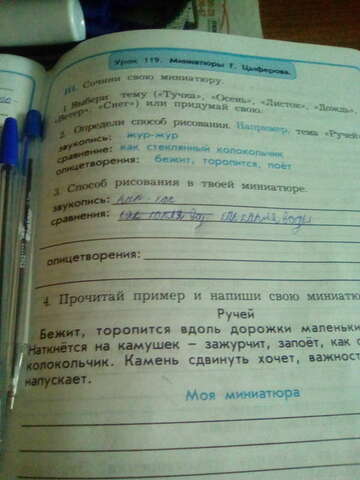 Урок 119. Миниатюры Г. Цыферова.
III. Сочини свою миниатюру.
1. Выбери тему («Тучка», «Осень», «Листок», «Дождь»,
«Ветер», «Снег») или придумай свою.
2. Определи способ рисования. Например, тема «Ручей
звукопись: жур-жур
сравнение: как стеклянный колокольчик
олицетворения: бежит, торопится, поёт
3. Способ рисования в твоей миниатюре.
звукопись: кап-кап
сравнения: как воды
олицетворения:
4. Прочитай пример и напиши свою миниатю
Ручей
Бежит, торопится вдоль дорожки маленьки
Наткнётся на камушек – зажурчит, запоёт, как с
колокольчик. Камень сдвинуть хочет, важност
напускает.
Моя миниатюра